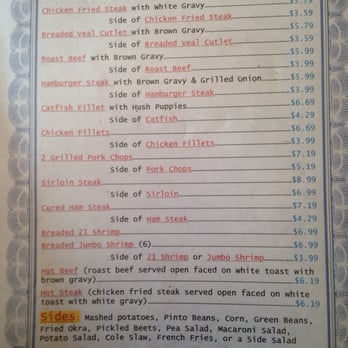 $5.79
Chicken Fried Steak with White Gravy
$3.59
Side of Chicken Fried Steak
$5.79
Breaded Veal Cutlet with Brown Gravy
$3.59
Side of Breaded Veal Cutlet
$5.99
Roast Beef with Brown Gravy
$3.99
Side of Roast Beef
$5.99
Hamburger Steak with Brown Gravy & Grilled Onion
$3.99
Side of Hamburger Steak
$6.69
Catfish Fillet with Hush Puppies
$4.29
Side of Catfish
$6.69
Chicken Fillets
$3.99
Side of Chicken Fillets
$7.19
2 Grilled Pork Chops
$5.19
Side of Pork Chops
$8.99
Sirloin Steak
$6.99
Side of Sirloin
$7.19
Cured Ham Steak
$4.29
Side of Ham Steak
Breaded 21 Shrimp $6.99
Breaded Jumbo Shrimp (6) $6.99
Side of 21 Shrimp or Jumbo Shrimp $3.99
Hot Beef (roast beef served open faced on white toast with
brown gravy) $6.19
Hot Steak (chicken fried steak served open faced on white
toast with white gravy) $6.19
Sides: Mashed potatoes, Pinto Beans, Corn, Green Beans,
Fried Okra, Pickled Beets, Pea Salad, Macaroni Salad,
Potato Salad, Cole Slaw, French Fries, or a Side Salad